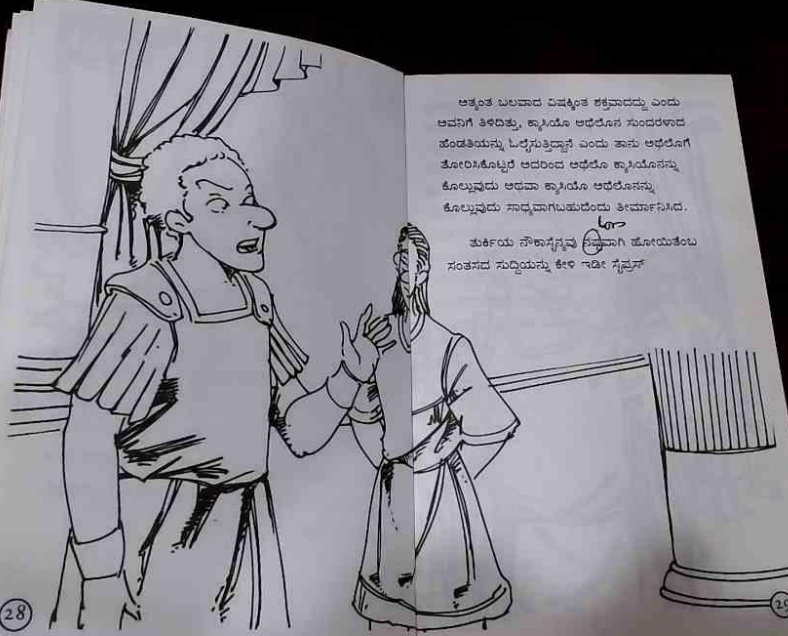 ಅತ್ಯಂತ ಬಲವಾದ ವಿಷಕ್ಕಿಂತ ಶಕ್ತವಾದದ್ದು ಎಂದು
ಅವನಿಗೆ ತಿಳಿದಿತ್ತು, ಕ್ಯಾಸಿಯೊ ಅಥೆಲೊನ ಸುಂದರಳಾದ
ಹೆಂಡತಿಯನ್ನು ಓಲೈಸುತ್ತಿದ್ದಾನೆ ಎಂದು ತಾನು ಅಥೆಲೊಗೆ
ತೋರಿಸಿಕೊಟ್ಟರೆ ಅದರಿಂದ ಅಥೆಲೊ ಕ್ಯಾಸಿಯೊನನ್ನು
ಕೊಲ್ಲುವುದು ಅಥವಾ ಕ್ಯಾಸಿಯೊ ಅಥೆಲೊನನ್ನು
ಕೊಲ್ಲುವುದು ಸಾಧ್ಯವಾಗಬಹುದೆಂದು ತೀರ್ಮಾನಿಸಿದ.
ತುರ್ಕಿಯ ನೌಕಾಸೈನ್ಯವು ನಷ್ಟವಾಗಿ ಹೋಯಿತೆಂಬ
ಸಂತಸದ ಸುದ್ದಿಯನ್ನು ಕೇಳಿ ಇಡೀ ಸೈಪ್ರಸ್
28
29